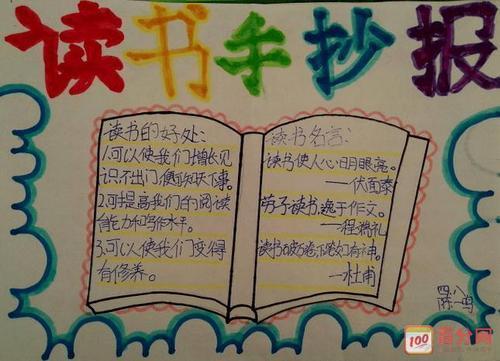 读书手抄报
读书的好处:
1.可以使我们增长见
识不出门,便可知天下事。
2.可提高我们的阅读
能力和写作水平。
3.可以使我们变得
有修养。
读书名言:
读书使人心明眼亮。
——伏
劳于读书,逸于作文。
——程端礼
读书破万卷,下笔如有神。
——杜甫
四、八
陈一鸣
100
百分网